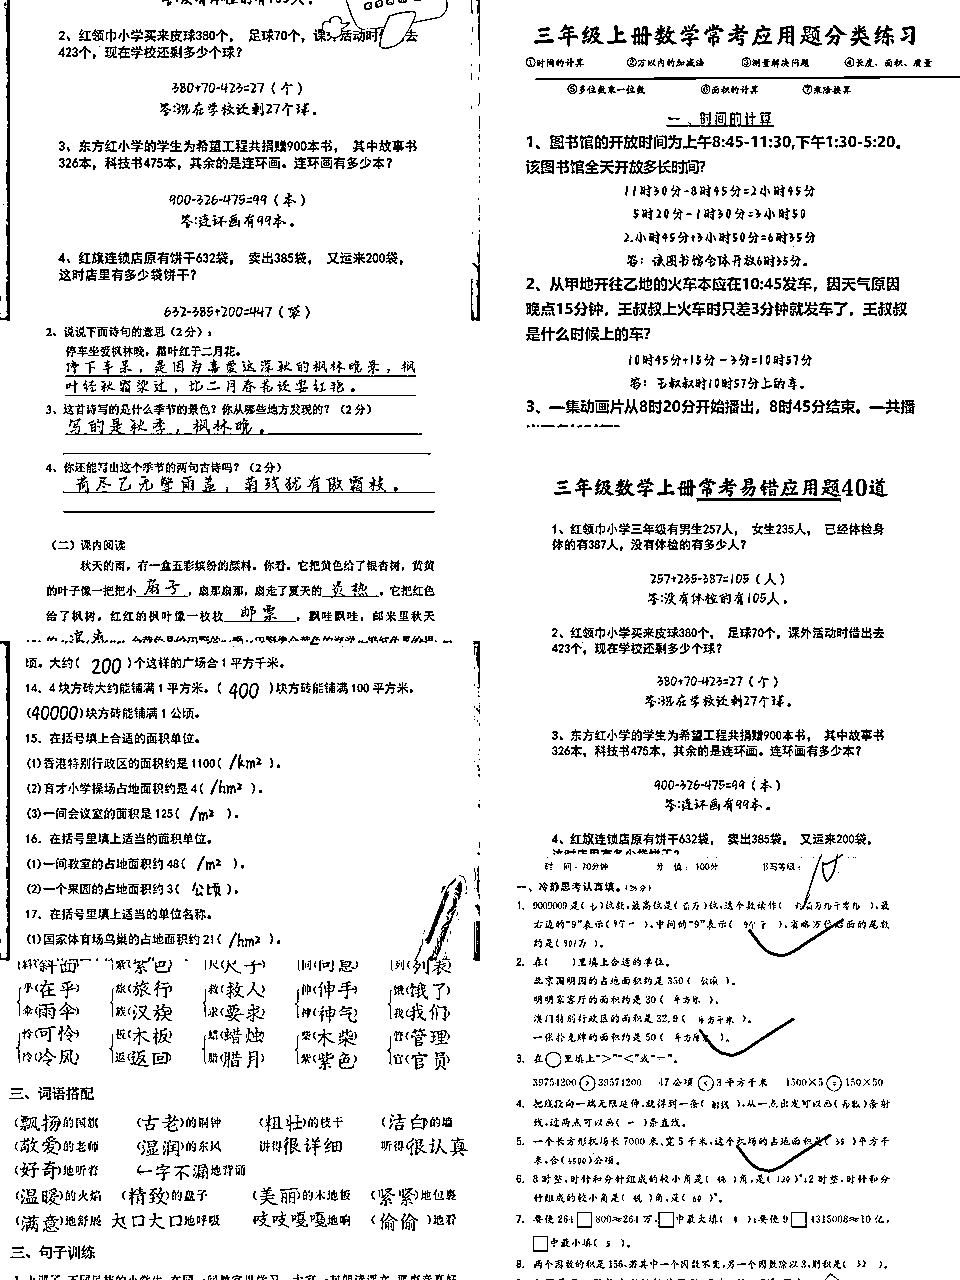 2、红领巾小学买来皮球380个， 足球70个，课 活动时 去
423个，现在学校还剩多少个球？
380+70-423=27（个）
答:现在学校还剩27个球。
3、东方红小学的学生为希望工程共捐赠900本书， 其中故事书
326本，科技书475本，其余的是连环画。连环画有多少本？
900-326-475=99（本）
答:连环画有99本。
4、红旗连锁店原有饼干632袋， 卖出385袋， 又运来200袋，
这时店里有多少袋饼干？
632-385+200=447（袋）
2、说说下面诗句的意思（2分）：
停车坐爱枫林晚，霜叶红于二月花。
停下车来，是因为喜爱这深秋的枫林晚景，枫
叶经秋霜染过，比二月春花还要红艳。
3、这首诗写的是什么季节的景色？你从哪些地方发现的？（2分）
写的是秋季，枫林晚。
4、你还能写出这个季节的两句古诗吗？（2分）
荷尽已无擎雨盖，菊残犹有傲霜枝。
（二）课内阅读
秋天的雨，有一盒五彩缤纷的颜料。你看，它把黄色给了银杏树，黄黄
的叶子像一把把小 扇子 ，扇那扇那，扇走了夏天的 炎热 。它把红色
给了枫树，红红的枫叶像一枚枚 邮票 ，飘哇飘哇，邮来里秋天
顷。大约（ 200 ）个这样的广场合1平方千米。
14、4块方砖大约能铺满1平方米。（ 400 ）块方砖能铺满100平方米，
（40000）块方砖能铺满1公顷。
15、在括号填上合适的面积单位。
(1)香港特别行政区的面积约是1100（ /km² ）。
(2)育才小学操场占地面积约是4（ /hm² ）。
(3)一间会议室的面积是125（ /m² ）。
16、在括号里填上适当的面积单位。
(1)一间教室的占地面积约48（ /m² ）。
(2)一个果园的占地面积约3（ 公顷 ）。
17、在括号里填上适当的单位名称。
(1)国家体育场鸟巢的占地面积约21（ /hm² ）。
斜(斜面 紧(紧巴 尺(尺子 问(问思 列(列表
乎(在乎) 旅(旅行 救(救人) 伸(伸手 饿(饿了
伞(雨伞) 族(汉族 求(要求) 神(神气 我(我们
怜(可怜 板(木板 蜡(蜡烛 柴(木柴 管(管理
冷(冷风 返(返回 腊(腊月 紫(紫色 官(官员
三、词语搭配
(飘扬)的国旗 (古老)的铜钟 (粗壮)的枝干 (洁白)的墙
(敬爱)的老师 (湿润)的东风 讲得(很详细 听得(很认真
(好奇)地听着 (一字不漏地背诵
(温暖)的火焰 (精致)的盘子 (美丽)的木地板 (紧紧)地包裹
(满意)地舒展 大口大口)地呼吸 吱吱嘎嘎)地响 (偷偷 )地看
三、句子训练
三年级上册数学常考应用题分类练习
①时间的计算 ②万以内的加减法 ③测量解决问题 ④长度、面积、质量
⑤多位数乘一位数 ⑥面积的计算 ⑦乘除换算
一、时间的计算
1、图书馆的开放时间为上午8:45-11:30,下午1:30-5:20。
该图书馆全天开放多长时间?
11时30分-8时45分=2小时45分
5时20分-1时30分=3小时50
2小时45分+3小时50分=6时35分
答：该图书馆全体开放6时35分。
2、从甲地开往乙地的火车本应在10:45发车，因天气原因
晚点15分钟，王叔叔上火车时只差3分钟就发车了，王叔叔
是什么时候上的车?
10时45分+15分-3分=10时57分
答：王叔叔时10时57分上的车。
3、一集动画片从8时20分开始播出，8时45分结束。一共播
三年级数学上册常考易错应用题40道
1、红领巾小学三年级有男生257人， 女生235人， 已经体检身
体的有387人，没有体检的有多少人？
257+235-387=105（人）
答:没有体检的有105人。
2、红领巾小学买来皮球380个， 足球70个，课外活动时借出去
423个，现在学校还剩多少个球？
380+70-423=27（个）
答:现在学校还剩27个球。
3、东方红小学的学生为希望工程共捐赠900本书， 其中故事书
326本，科技书475本，其余的是连环画。连环画有多少本？
900-326-475=99（本）
答:连环画有99本。
4、红旗连锁店原有饼干632袋， 卖出385袋， 又运来200袋，
时 间：70分钟 分 值：100分 书写等级：
一、冷静思考认真填。
1、9009009是（七）位数，最高位是（百万）位，这个数读作（ ），最
右边的“9”表示（9个一 ），中间的“9”表示（ 9个千 ），省略万位后面的尾数
约是（901万）。
2、在（ ）里填上合适的单位。
北京圆明园的占地面积约是350（ 公顷 ）。
明明家客厅的面积约是30（ 平方米 ）。
澳门特别行政区的面积是32.9（ 平方千米 ）。
一张扑克牌的面积约是50（ 平方 ）。
3、在○里填上“>”“<”或“=”。
39754200 > 39574200 47公顷 < 3平方千米 1500×5 = 150×50
4、把线段向一端无限延伸,就得到一条（ 射线 ），从一点出发可以画（无数）条射
线，过两点可以画（ 一 ）条直线。
5、一个长方形机场长7000米，宽5千米，这个机场的占地面积是（ 35 ）平方千
米，合（3500）公顷。
6、8时整，时针和分针组成的较小角是（ 钝 ）角，是（120）°；2时整，时针和分
针组成的较小角是（ 锐 ）角，是（60 ）°。
7、要使264□800≈264万，□中最大填（ 4 ）；要使9□4315008≈10亿，
□中最小填（ 5 ）。
8、两个因数的积是156，若其中一个因数不变，另一个因数除以3,则积是（ 52 ）。